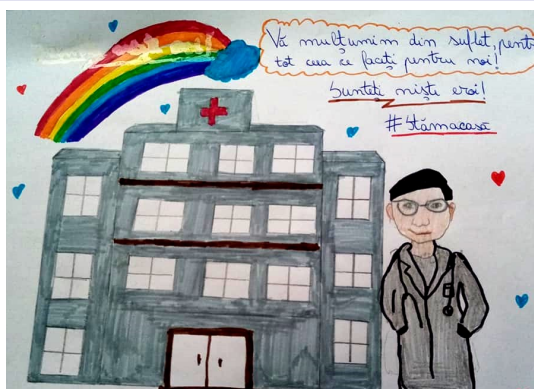 Vă mulțumim din suflet, pentru
tot ceea ce faceți pentru noi!
Sunteți niște eroi!
#Stămacasă